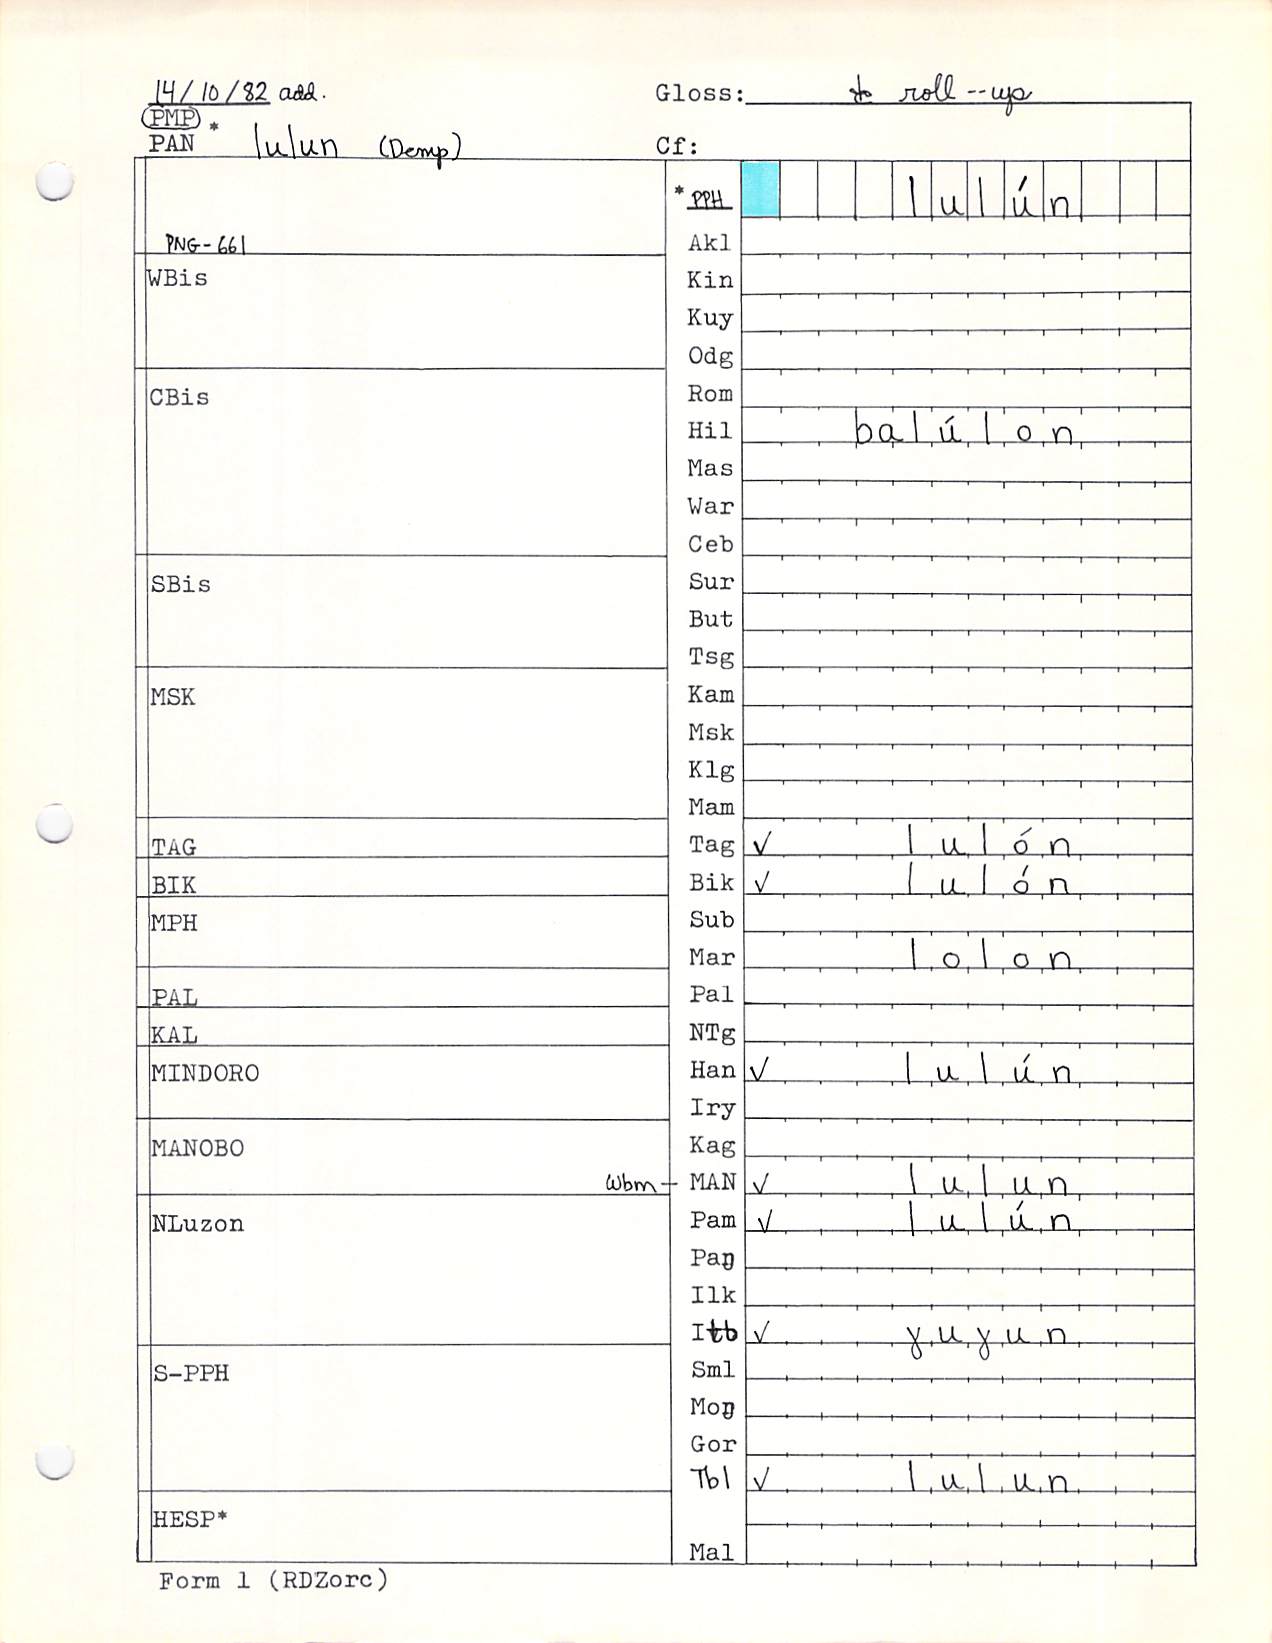 14/10/82 add. Gloss: to roll--up
PMP
PAN * lulun (Demp) Cf:
* PPH lulún
PNG-661 Akl
WBis Kin
Kuy
Odg
CBis Rom
Hil balúlon
Mas
War
Ceb
SBis Sur
But
Tsg
MSK Kam
Msk
Klg
Mam
TAG Tag ✓ lulón
BIK Bik ✓ lulón
MPH Sub
Mar lolon
PAL Pal
KAL NTg
MINDORO Han ✓ lulún
Iry
MANOBO Kag
Wbm – MAN ✓ lulun
NLuzon Pam ✓ lulún
Paŋ
Ilk
Itb ✓ ɣuɣun
S-PPH Sml
Moŋ
Gor
Tbl ✓ lulun
HESP*
Mal
Form 1 (RDZorc)